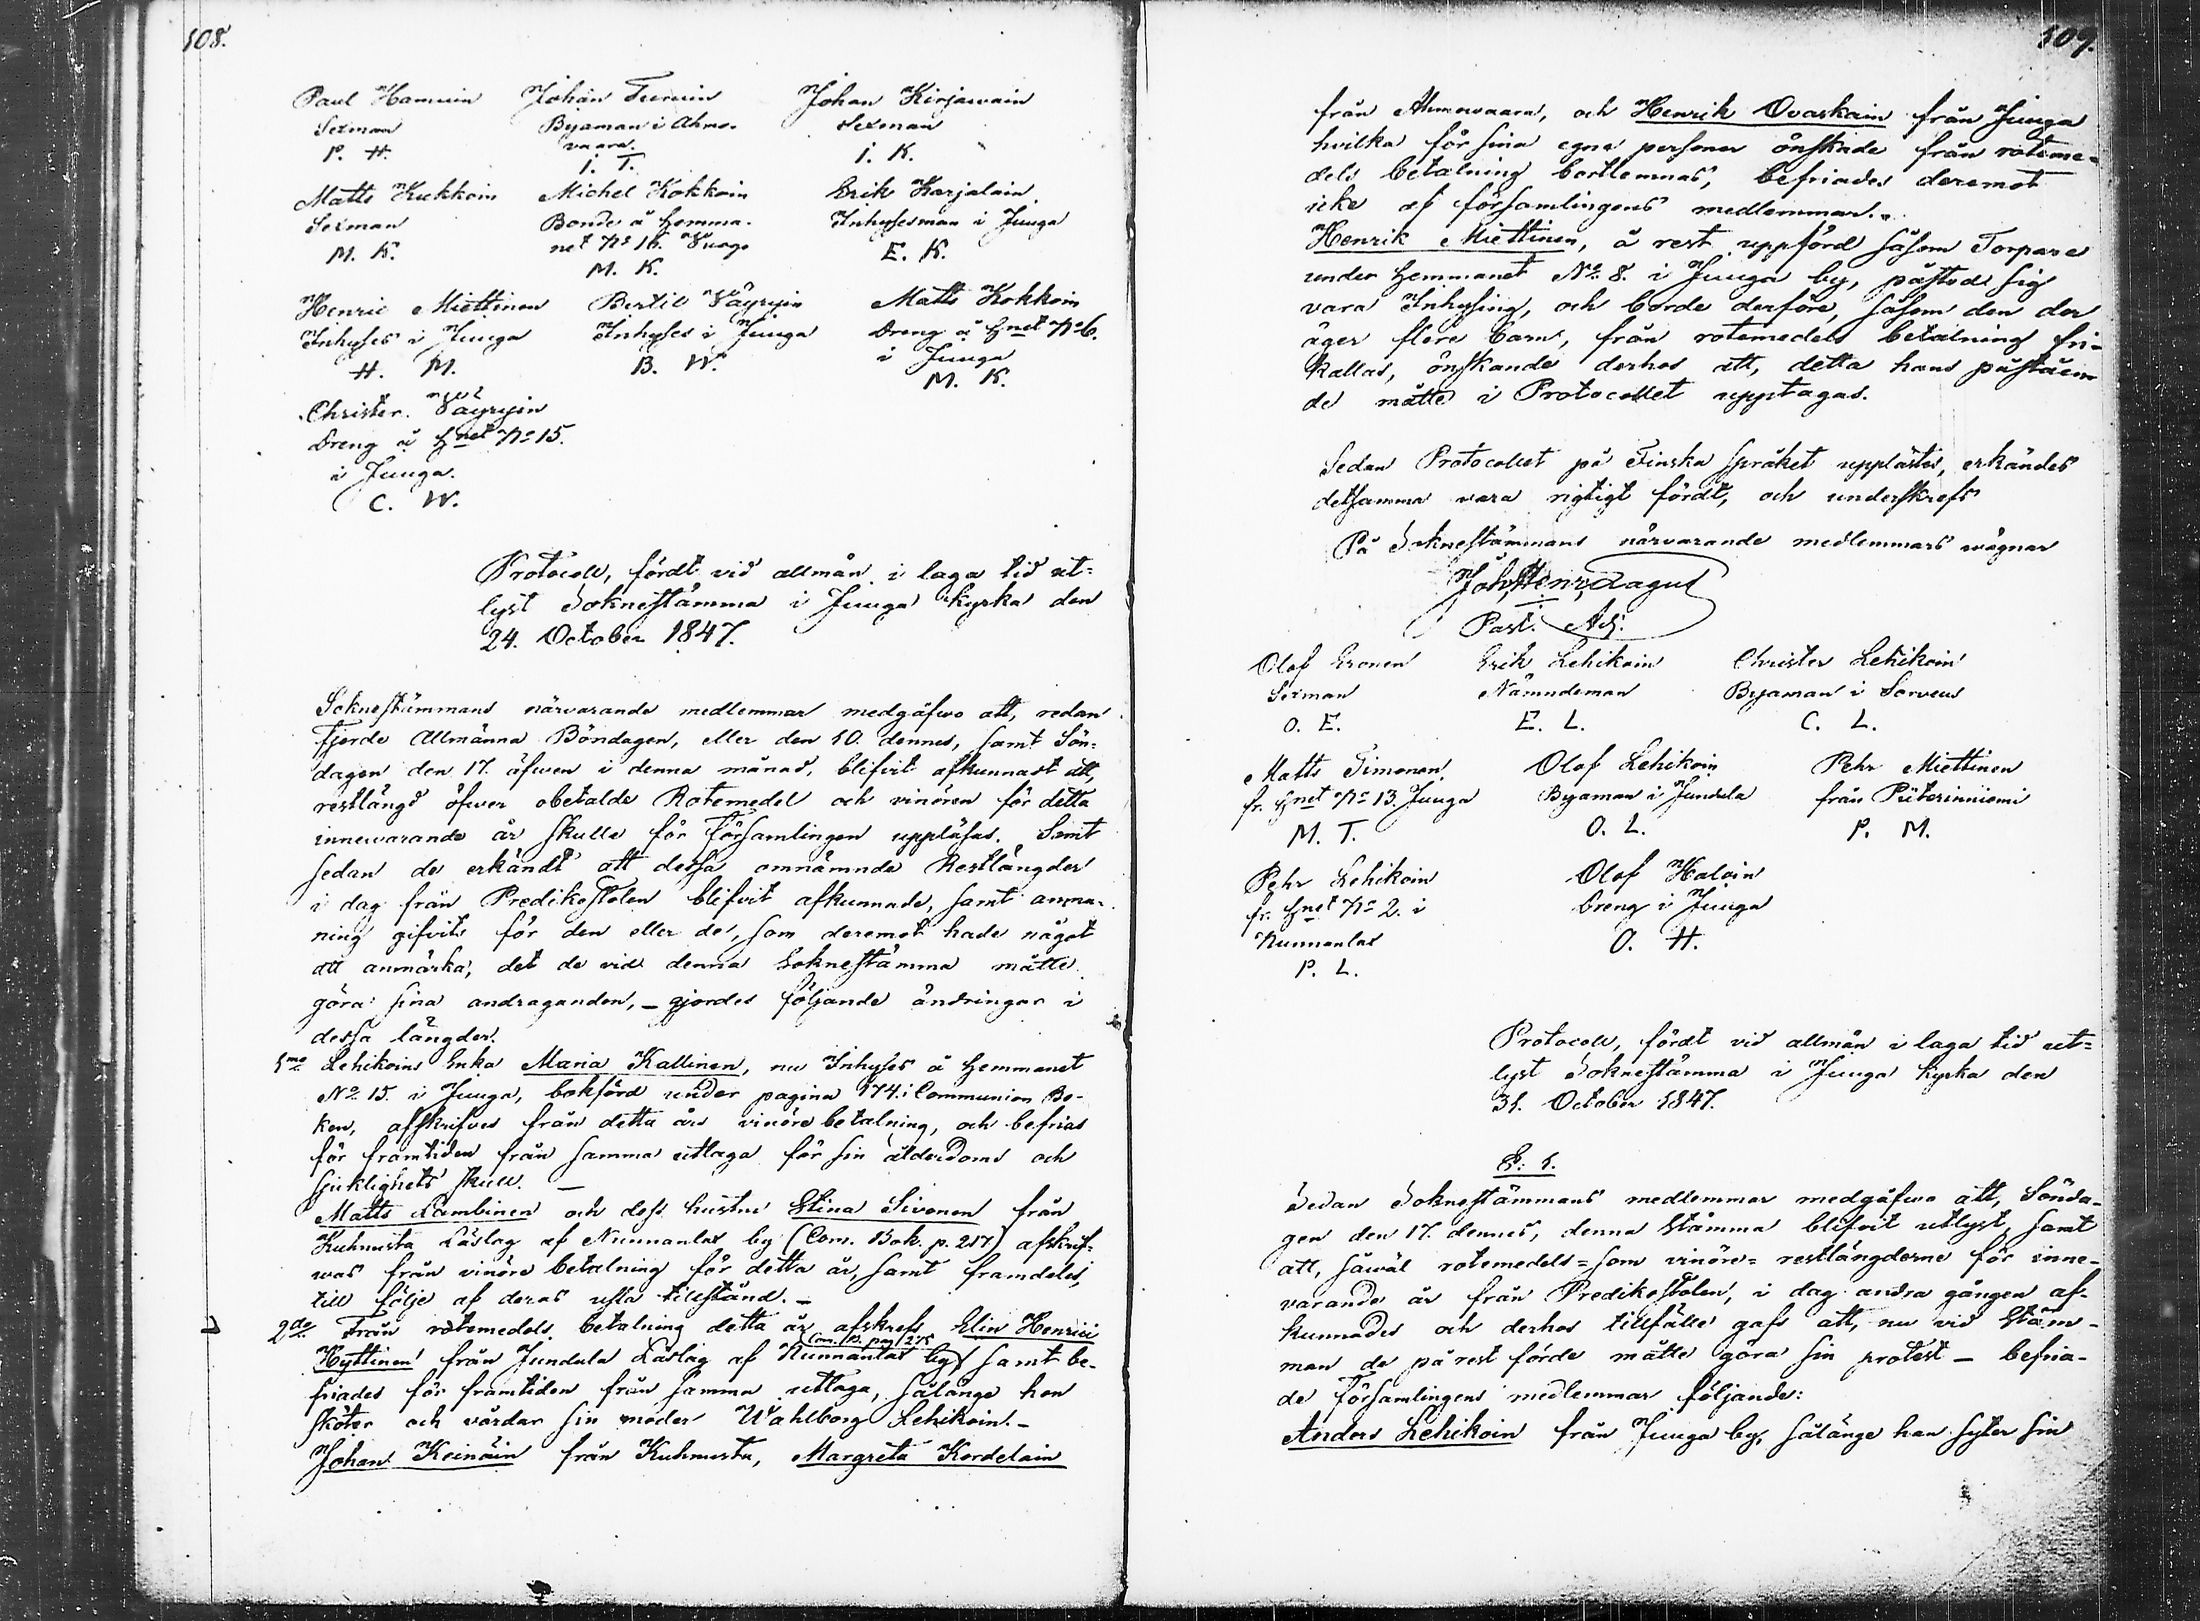 108.
Paul Hamuin Johan Turuin Johan Kirjawain
Sexman Byaman i Ahmo- Sexman
P. H. vaara. I. K.
I. T.
Matts Kukkoin Michel Kokkoin Erik Karjalain
Sexman Bonde å Hemma- Inhysesman i Juuga
M. K. net No 16. E. K.
M. K.
Henric Miettinen Bertil Väyryin Matts Kokkoin
Inhyses i Juuga Inhyses i Juuga Dreng å Hnet No 6.
H. M. B. W. i Juuga
M. K.
Christer Väyryin
Dreng å Hnet No 15.
i Juuga.
C. W.
Protocoll, fördt vid allmän i laga tid ut=
lyst Soknestämma i Juuga Kyrka den
24. October 1847.
Soknestämmans närvarande medlemmar medgåfwo att, redan
Fjerde Allmänna Böndagen, eller den 10. dennes, samt Sön=
dagen den 17. äfwen i denna månad, blifvit afkunnadt att,
restlängd öfwer obetalde Rotemedel och vinören för detta
innewarande år skulle för Församlingen uppläsas. Samt
sedan de erkändt att dessa omnämnde Restlängder
i dag från Predikostolen blifvit afkunnade, samt anma-
ning gifvits för den eller de, som deremot hade något
att anmärka, det de vid denna Soknestämma måtte
göra sina andraganden, – gjordes följande ändringar i
dessa längder.
1mo Lehikoins Enka Maria Kallinen, nu Inhyses å Hemmanet
No 15. i Juuga, bokförd under pagina 174. i Communion Bo-
ken, afskrifves från detta års vinöre betalning, och befrias
för framtiden från samma utlaga för sin ålderdoms och
sjuklighets skull. –
Matts Lambinen och dess hustru Stina Sivonen från
Kuhnusta Läslag af Nunnanlax by (Com. Bok. p. 217) afskrif-
was från vinöre betalning för detta år, samt framdeles,
till följe af deras usla tillstånd. –
2do Från rotemedels betalning detta år afskrefs Elin Henrici
Com. B. pag 275
Hyttinen från Jundula Läslag af Nunnanlax by samt be-
friades för framtiden från samma utlaga, sålänge hon
sköter och vårdar sin moder Wahlborg Lehikoin. –
Johan Keinäin från Kuhnusta, Margreta Kordelain
109.
från Ahmowaara, och Henrik Ovaskain från Juuga
hvilka för sina egna personer önskade från roteme-
dels betalning bortlemnas, befriades deremot
icke af församlingens medlemmar.
Henrik Miettinen, å rest uppförd såsom Torpare
under Hemmanet No. 8. i Juuga by, påstod sig
vara Inhysing, och borde derföre, såsom den der
äger flere barn, från rotemedels betalning fri-
kallas, önskande derhos att, detta hans påståen
de måtte i Protocollet upptagas.
Sedan Protocollet på Finska språket upplästes, erkändes
detsamma vara rigtigt fördt, och underskrefs
På Soknestämmans närvarande medlemmars wägnar
Joh. Henr. Zagus
Past. Adj.
Olof Eronen Erik Lehikoin Christer Lehikoin
Sexman Nämndeman Byaman i Larveus
O. E. E. L. C. L.
Matts Timonen Olof Lehikoin Pehr Miettinen
fr. Hnet No 13. Juuga Byaman i Jundula från Piiterinniemi
M. T. O. L. P. M.
Pehr Lehikoin Olof Haloin
fr. Hnet No 2. i Dreng i Juuga
Nunnanlax O. H.
P. L.
Protocoll, fördt vid allmän i laga tid ut=
lyst Soknestämma i Juuga Kyrka den
31. October 1847.
§. 1.
Sedan Soknestämmans medlemmar medgåfwo att, Sönda-
gen den 17. dennes, denna Stämma blifvit utlyst, samt
att, såwäl rotemedels= som vinöre= restlängderne för inne-
varande år från Predikostolen, i dag andra gången af-
kunnades och derhos tillfälle gafs att, nu vid Stäm-
man de på rest förde måtte göra sin protest – befria-
de Församlingens medlemmar följande:
Anders Lehikoin från Juuga by, sålänge han syter sin